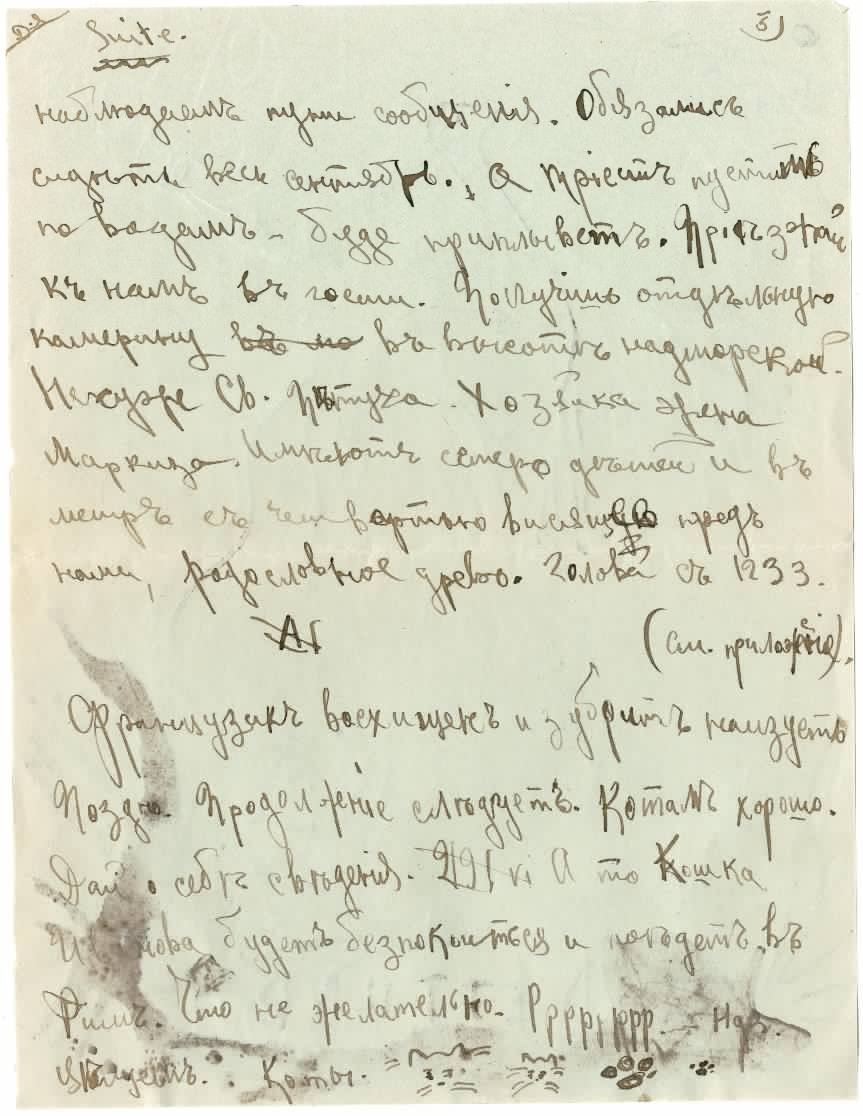 Suite. 5)
наблюдаемъ пути сообщенія. Обязались
сидѣть весь сентябрь. А Тріестъ пустить
по водамъ – буде приплыветъ. Пріѣзжай
къ намъ въ гости. Получишь отдѣльную
камерину въ высотѣ надморской.
Св. Пѣтуха. Хозяйка
Маркиза. Имѣютъ семеро дѣтей и въ
метръ съ четвертью висящее предъ
нами, родословное древо. Голова съ 1233.
(см. приложеніе).
Французикъ восхищенъ и зубритъ наизусть
Поздно. Продолженіе слѣдуетъ. Котамъ хорошо.
Дай о себѣ свѣдѣнія. А то Кошка
будетъ безпокоиться и поѣдетъ въ
Римъ. Что не желательно. Рррррррр
Цѣлуемъ. Коты.